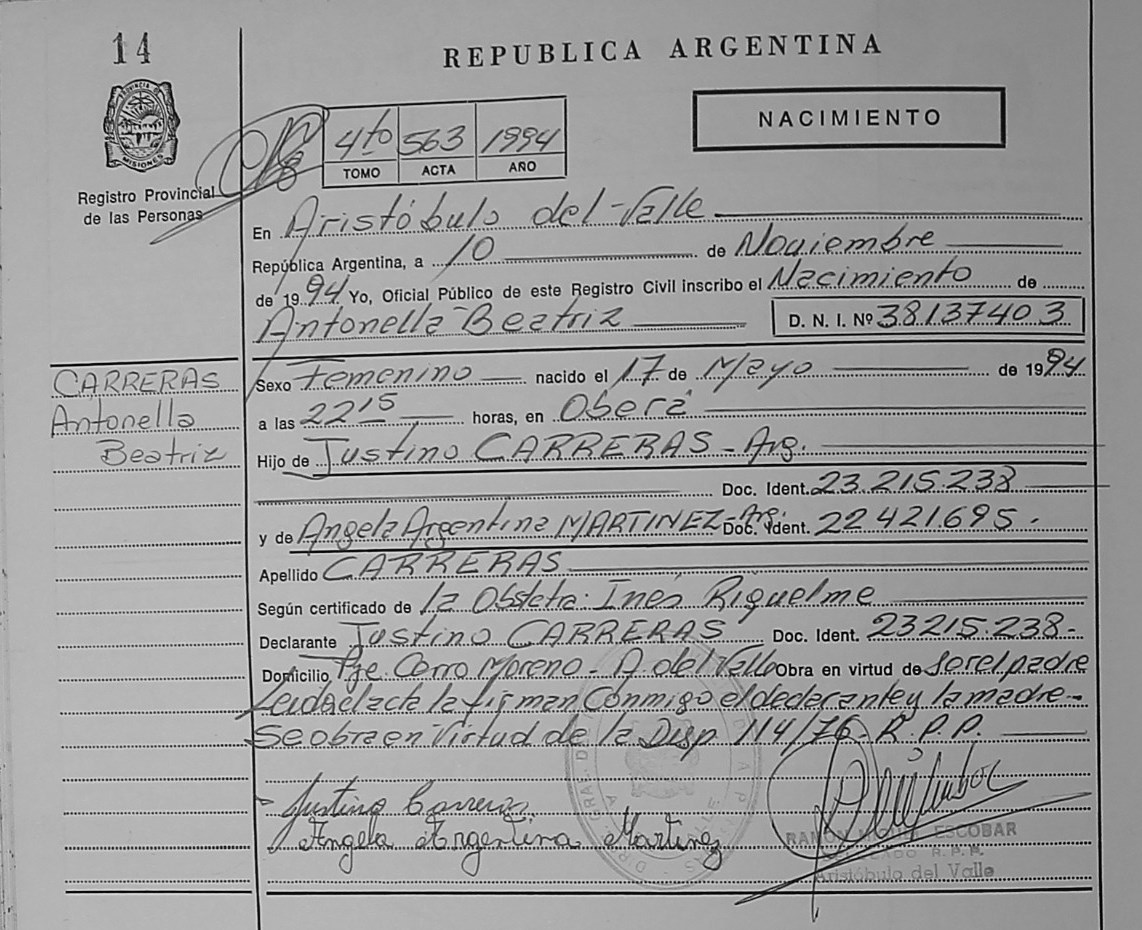 14
REPUBLICA ARGENTINA
NACIMIENTO
PROVINCIA DE MISIONES
Registro Provincial
de las Personas
4to 563 1994
TOMO ACTA AÑO
En Aristóbulo del Valle
República Argentina, a 10 de Noviembre
de 1994 Yo, Oficial Público de este Registro Civil inscribo el Nacimiento de
Antonella Beatriz D. N. I. Nº 38137403
CARRERAS
Antonella
Beatriz
Sexo Femenino nacido el 17 de Mayo de 1994
a las 22 15 horas, en Oberá
Hijo de Justino CARRERAS - Arg.
Doc. Ident. 23.215.238
y de Angela Argentina MARTINEZ - Arg. Doc. Ident. 22421.695.
Apellido CARRERAS
Según certificado de la Obsteta: Inés Riquelme
Declarante Justino CARRERAS Doc. Ident. 23215.238-
Domicilio Pje. Cerro Moreno - A. del Valle Obra en virtud de ser el padre
Leida el acta la firman Conmigo el declarante y la madre-
Se obra en Virtud de la Disp 114/76 - R.P.P.
Justino Carreras
Angela Argentina Martinez
ESCOBAR
R.P.P.
Aristóbulo del Valle